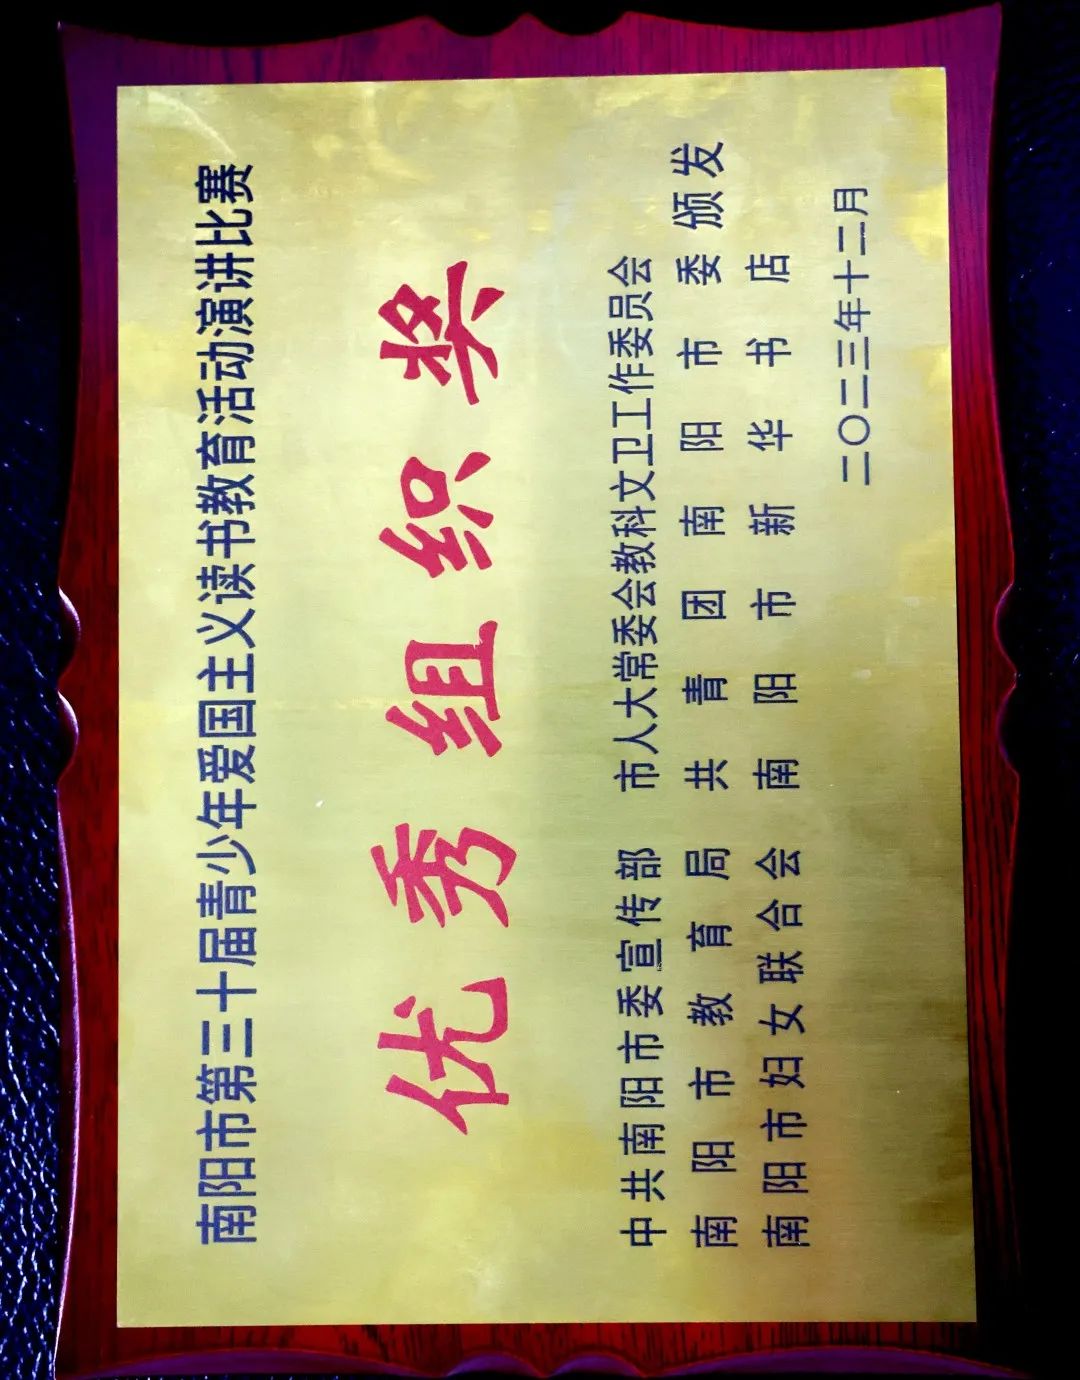 南阳市第三十届青少年爱国主义读书教育活动演讲比赛
优秀组织奖
中共南阳市委宣传部 市人大常委会教科文卫工作委员会
南阳市教育局 共青团南阳市委 颁发
南阳市妇女联合会 南阳市新华书店
二〇二三年十二月